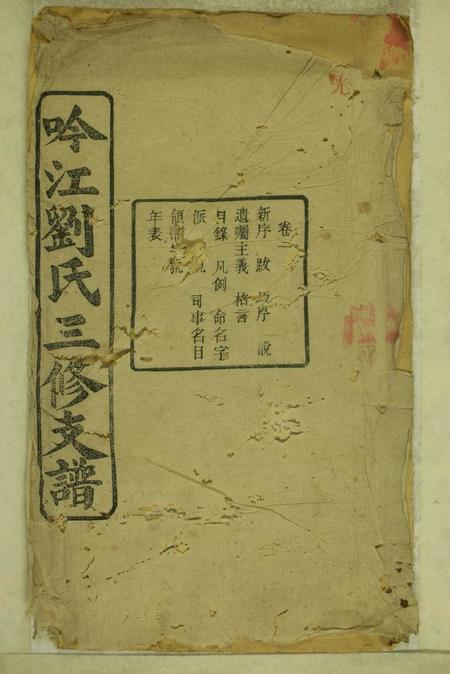 吟江劉氏三修支譜
卷
新序 跋 序 說
遺囑主義 格言
目錄 凡例 命名字
派 司事名目
領譜 號
年表